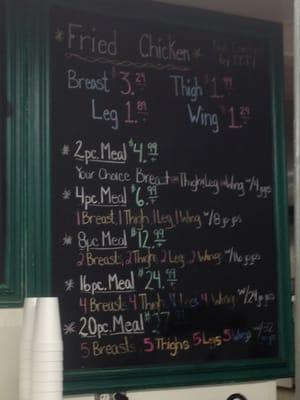 * Fried Chicken *
Breast $3.29 Thigh $1.99
Leg 1.89 Wing $1.29
* 2pc. Meal $4.99
Your Choice Breast Thigh&Leg Wing w/4 pjs
* 4pc. Meal $6.99
1 Breast, 1 Thigh, 1 Leg, 1 Wing w/8 pjs
* 8pc Meal $12.99
2 Breasts, 2 Thigh, 2 Leg, 2 Wings w/16 pjs
* 16pc. Meal $24.99
4 Breasts 4 Thigh 4 Legs 4 Wings w/24 pjs
* 20pc. Meal $27
5 Breasts 5 Thighs 5 Legs 5 Wings w/32